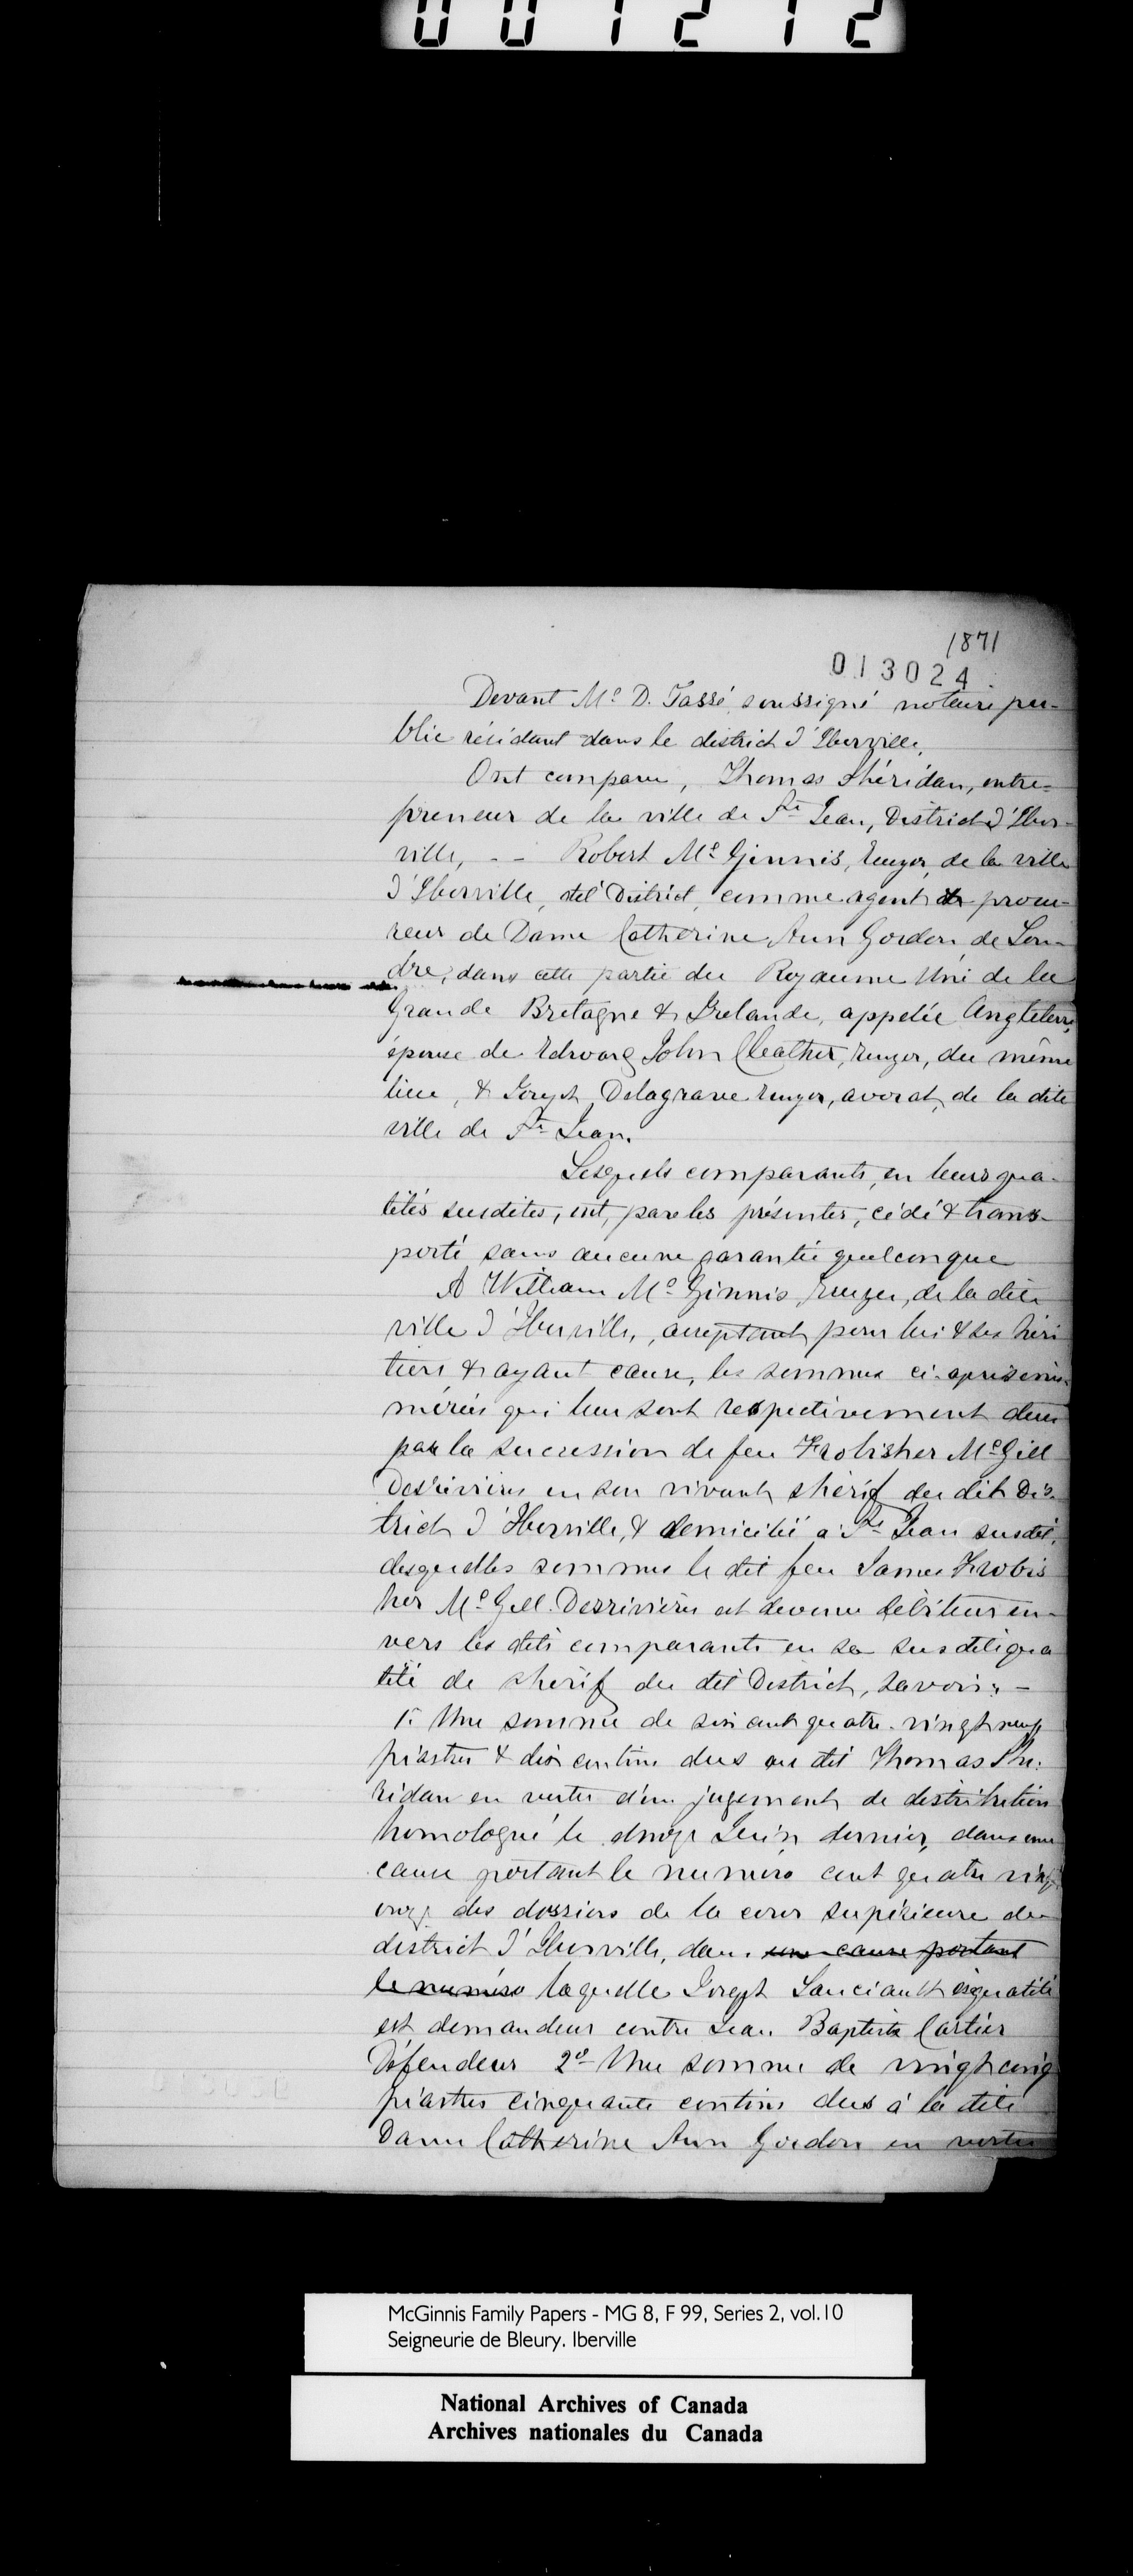 001212
1871
013024
Devant Me D. Tassé soussigné notaire pu-
blic résidant dans le district d'Iberville,
Ont comparu, Thomas Shéridan, entre-
preneur de la ville de St Jean, District d'Iber-
ville, - - Robert McGinnis, Ecuyer, de la ville
d'Iberville, dit District, comme agent & procu-
reur de Dame Catherine Ann Gordon, de Lon-
dre, dans cette partie du Royaume Uni de la
Grande Bretagne & Irelande, appelée Angleterre,
épouse de Edward John Cleather, Ecuyer, du même
lieu, & Joseph Delagrave Ecuyer, avocat, de la dite
ville de St Jean.
Lesquels comparants, en leurs qua-
lités susdites, ont, par les présentes, cédé & trans-
porté sans aucune garantie quelconque
A William McGinnis, Ecuyer, de la dite
ville d'Iberville, acceptant pour lui & ses héri
tiers & ayant cause, les sommes ci-après énu-
mérées qui leur sont respectivement dues
par la succession de feu Frobisher McGill
Desrivières en son vivant shérif du dit Dis-
trict d'Iberville, & domicilié à St Jean susdit,
desquelles sommes le dit feu James Frobis
her McGill Desrivières est devenu débiteur en-
vers les dits comparants en sa susdite qua
lité de shérif du dit District, savoir: -
1° Une somme de six cent quatre-vingt neuf
piastres & dix centins dus au dit Thomas She-
ridan en vertu d'un jugement de distribution
homologué le douze Juin dernier, dans une
cause portant le numéro cent quatre vingt
onze des dossiers de la cour supérieure du
district d'Iberville, dans une cause portant
le numéro laquelle Joseph Lanciault èsqualité
est demandeur contre Jean Baptiste Cartier
Défendeur 2° Une somme de vingt cinq
piastres cinquante centins dus à la dite
Dame Catherine Ann Gordon en vertu
McGinnis Family Papers - MG 8, F 99, Series 2, vol.10
Seigneurie de Bleury. Iberville
National Archives of Canada
Archives nationales du Canada